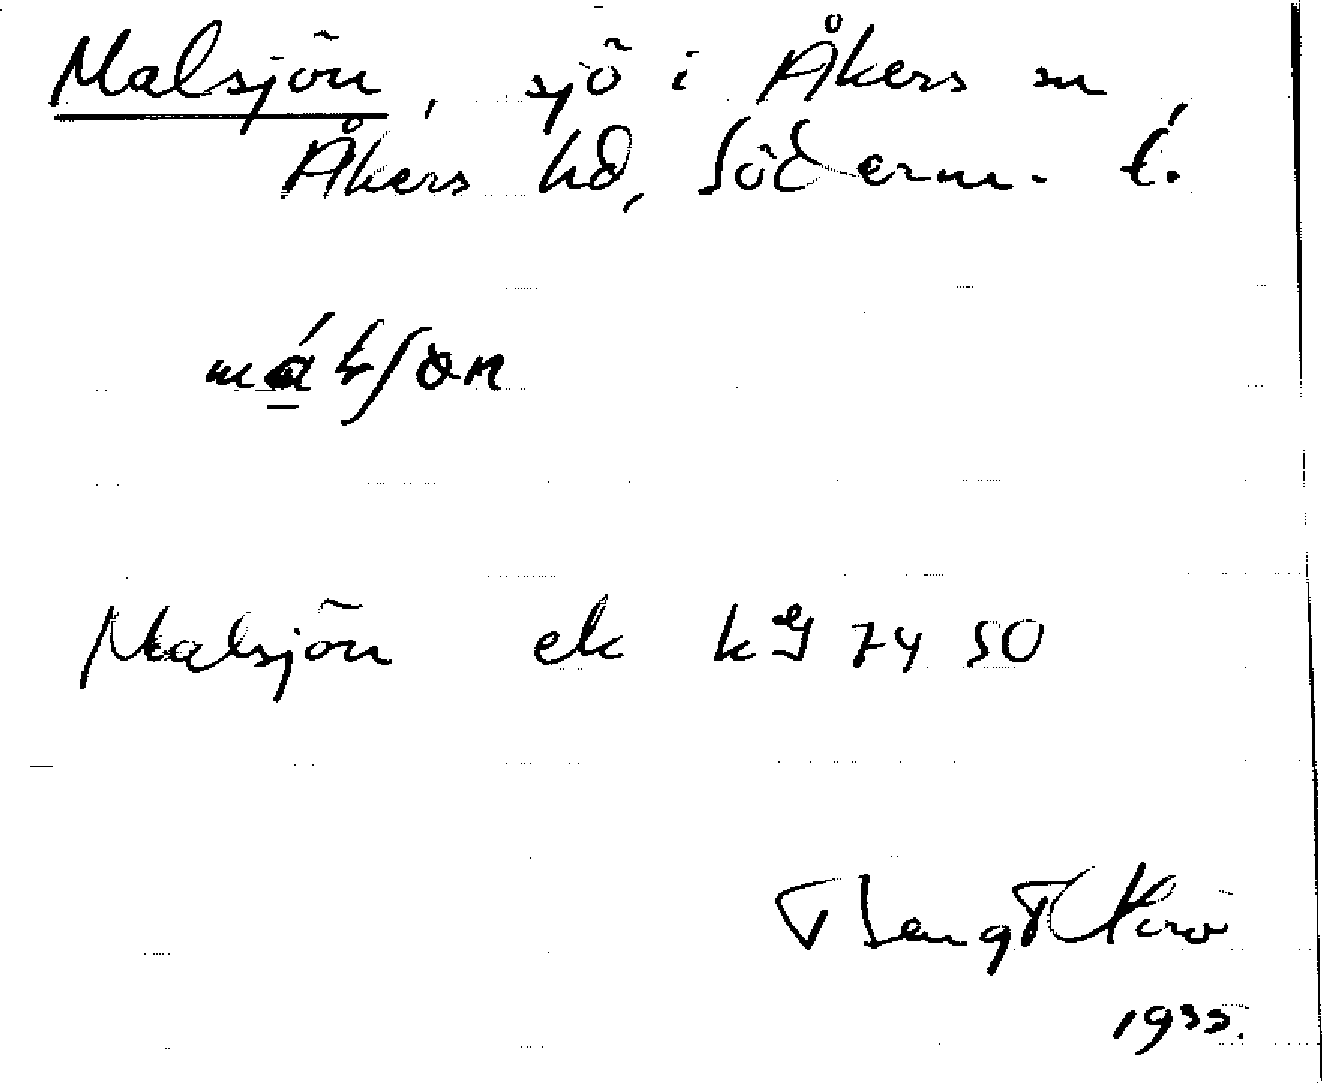 Malsjön, sjö i Åkers sn
Åkers hd, Söderm. l.
Malsjön ek kg 74 50
Bengt
1935.